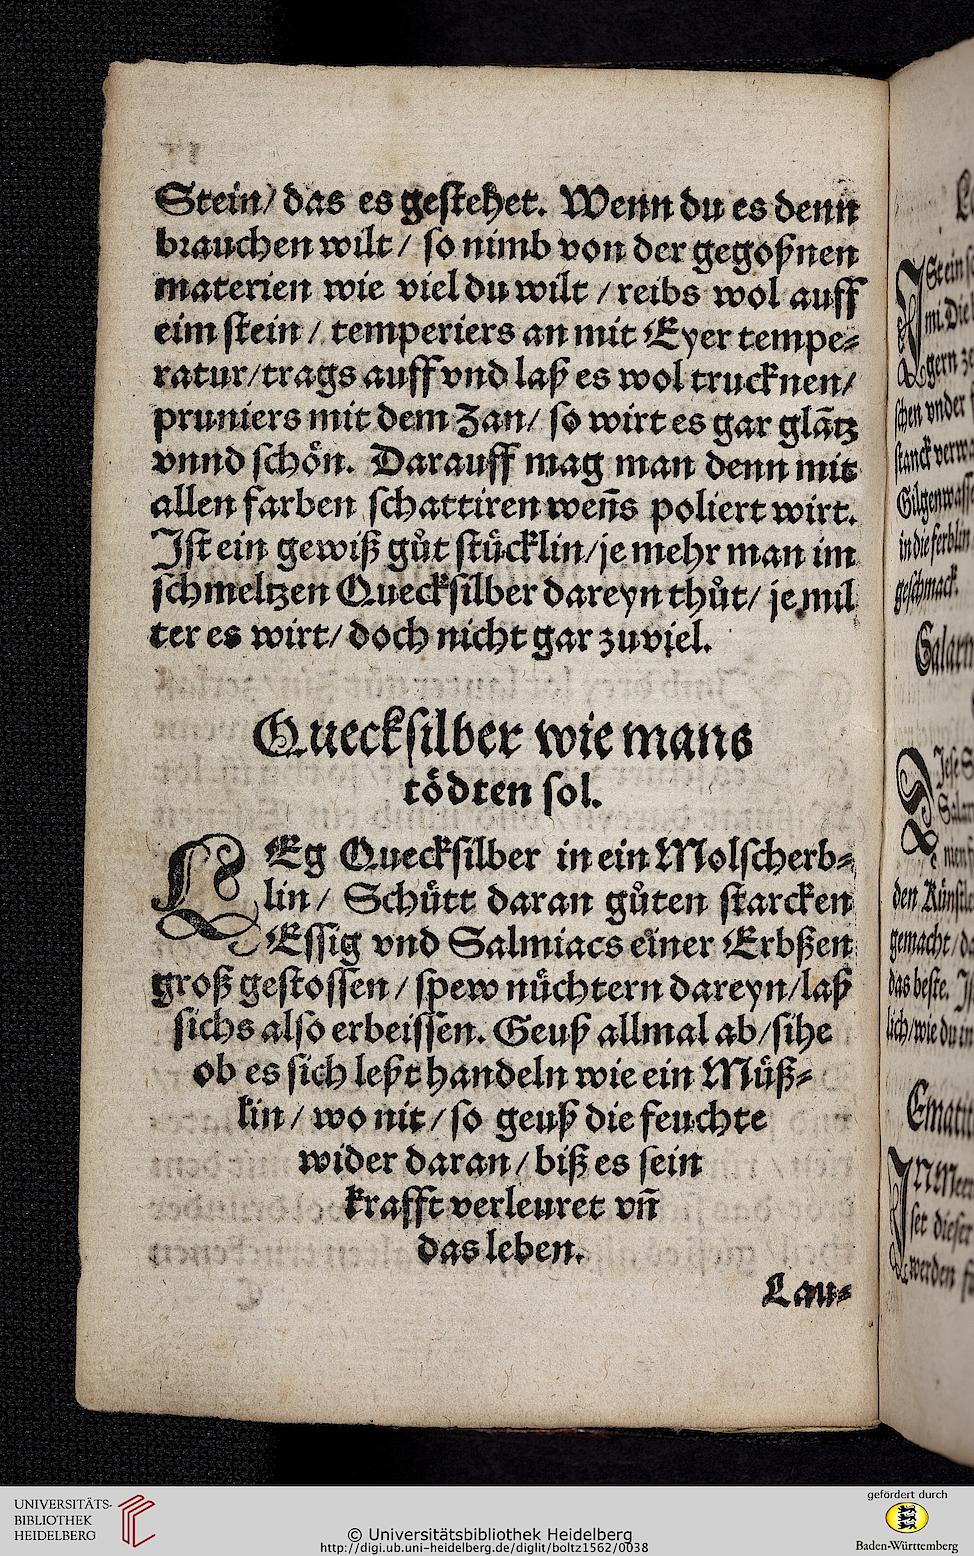 Stein/ das es gestehet. Wenn du es denn
brauchen wilt / so nimb von der gegoßnen
materien wie viel du wilt / reibs wol auff
eim stein / temperiers an mit Eyer tempe⸗
ratur/trags auff vnd laß es wol trucknen/
pruniers mit dem Zan/ so wirt es gar glãtz
vnnd schön. Darauff mag man denn mit
allen farben schattiren weñs poliert wirt.
Ist ein gewiß gůt stücklin/je mehr man im
schmeltzen Quecksilber dareyn thůt/ je mil
ter es wirt/ doch nicht gar zuviel.
Quecksilber wie mans
tödten sol.
LEg Quecksilber in ein Molscherb⸗
lin / Schütt daran gůten starcken
Essig vnd Salmiacs einer Erbßen
groß gestossen / spew nüchtern dareyn/laß
sichs also erbeissen. Geuß allmal ab/sihe
ob es sich leßt handeln wie ein Müß⸗
lin / wo nit / so geuß die feuchte
wider daran / biß es sein
krafft verleuret vñ
das leben.
Lau⸗
Stein
im. Die
gern
schen vnder
stanck
Gilgenwass
in die ferblin
geschmack.
Diese
den Künstle
gemacht /
das beste.
lich/wie du
Emati
IN Meer
set dieser
werden
UNIVERSITÄTS-
BIBLIOTHEK
HEIDELBERG
© Universitätsbibliothek Heidelberg
http://digi.ub.uni-heidelberg.de/diglit/boltz1562/0038
gefördert durch
Baden-Württemberg